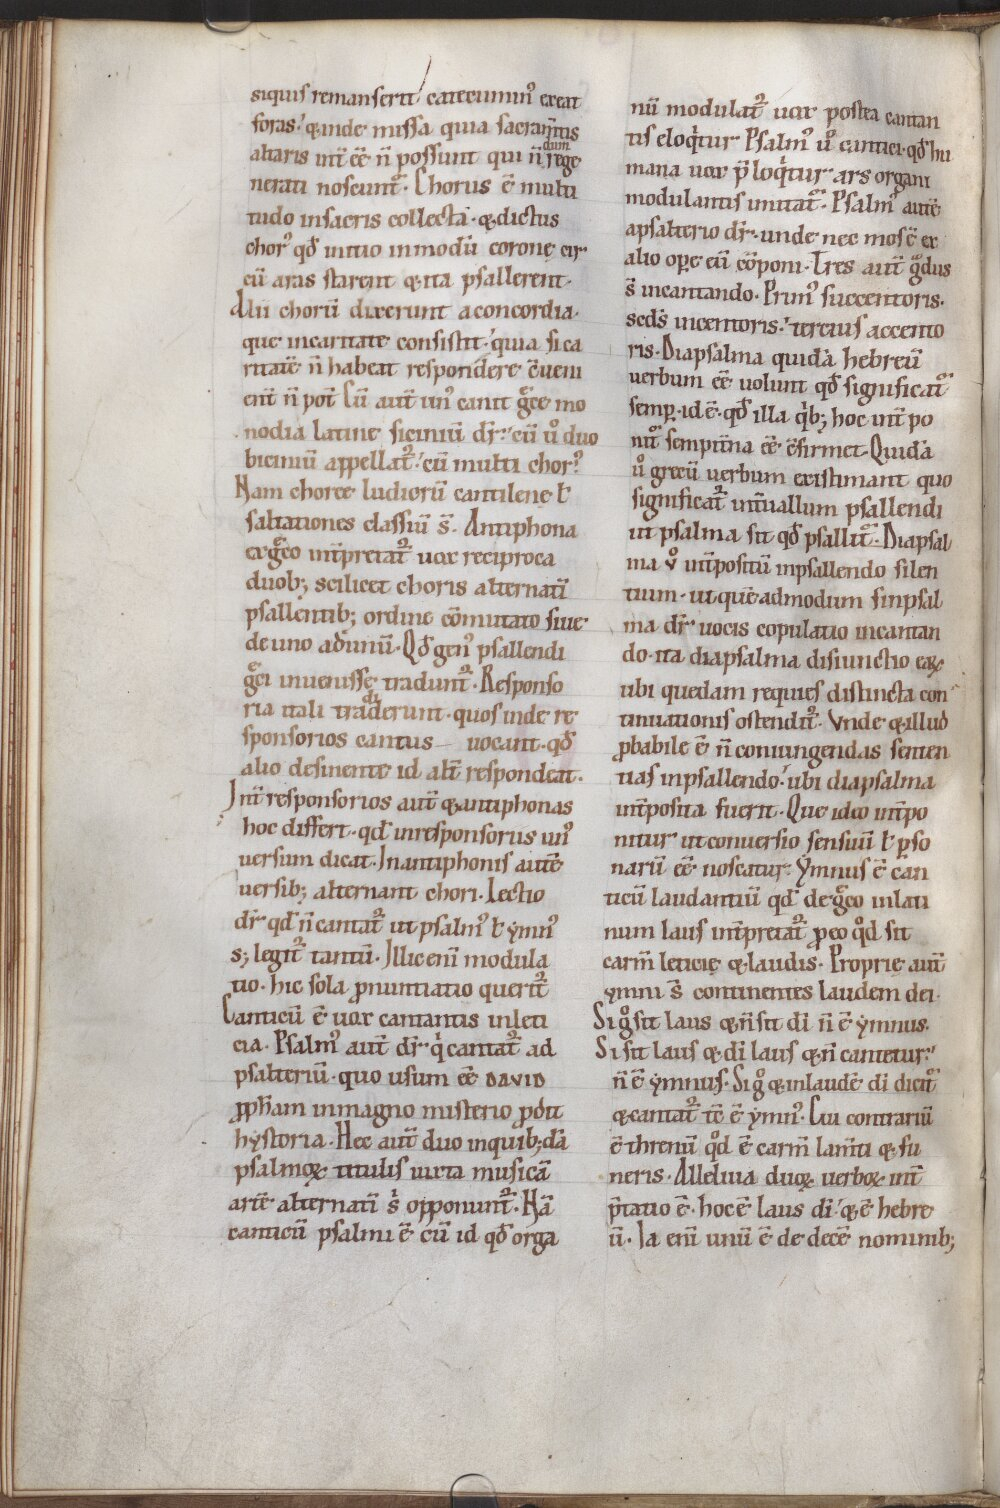 siquis remanserit catecuminꝰ exeat
foras. ⁊inde missa quia sacram̅tis
altaris int̅ee̅ n̅ possunt qui n̅dum rege
nerati noscunt᷑. Chorus e̅ multi
tudo insacris collecta. ⁊dictus
chorꝰ qd̅ initio inmodu̅ coronę cir
cu̅ aras starent ⁊ita psallerent.
Alii choru̅ dixerunt aconcordia.
que incaritate consistit. quia si ca
ritate̅ n̅ habeat respondere c̅ueni
ent̅ n̅ pot̅ Cu̅ aut̅ unꝰ canit gͣce mo
nodia latine siciniu̅ dr̅. cu̅ uͦ duo
biciniu̅ appellat᷑. cu̅ multi chorꝰ.
Nam choree ludicru̅ cantilene ł
saltationes classiu̅ s̅. Antiphona
exgͣco int̅pretat᷑ uox reciproca
duob; scilicet choris alternati̅
psallentib; ordine co̅mutato siue
de uno adunu̅. Qd̅ genꝰ psallendi
gͣci inuenisse tradunt᷑. Responso
ria itali tradiderunt. quos inde re
sponsorios cantus uocant. qd̅
alio desinente id alt̅ respondeat.
Int̅ responsorios aut̅ ⁊antiphonas
hoc differt. qd̅ inresponsoriis unꝰ
uersum dicat. Inantiphonis aute̅
uersib; alternant chori. Lectio
dr̅ qd̅ n̅ cantat᷑ ut psalmꝰ ł ymnꝰ
s; legit᷑ tantu̅. Illic eni̅ modula
tio. hic sola ꝓnuntiatio querit᷑
Canticu̅ e̅ uox cantantis inleti
cia. Psalmꝰ aut̅ dr̅ qͥ cantat᷑ ad
psalteriu̅. quo usum ee̅ DAVID
ꝓph̅am inmagno misterio ꝓdit
hystoria. Hec aut̅ duo inquib;da̅
psalmoꝝ titulis iuxta musica̅
arte̅ alternati̅ sͥ opponunt᷑. Na̅
canticu̅ psalmi e̅ cu̅ id qd̅ orga
nu̅ modulat᷑ uox postea cantan
tis eloqͥtur Psalmꝰ uͦ cantici. qd̅ hu
mana uox p̅loqͥtur ars organi
modulantis imitat᷑. Psalmꝰ aute̅
apsalterio dr̅. unde nec mos e̅ ex
alio oꝑe eu̅ co̅poni. Tres aut̅ gͣdus
s̅ incantando. Primꝰ succentoris.
scd̅s incentoris. tercius accento
ris. Diapsalma quida̅ hebreu̅
uerbum ee̅ uolunt qd̅ significat᷑
semꝑ. id e̅. qd̅ illa qͥb; hoc int̅po
nit᷑ sempit̅na ee̅ c̅firmet. Quida̅
uͦ grecu̅ uerbum existimant quo
significat᷑ int̅uallum psallendi
ut psalma sit qd̅ psallit᷑. Diapsal
ma uͦ int̅positu̅ inpsallendo silen
tium. ut que̅admodum sinpsal
ma dr̅ uocis copulatio incantan
do. ita diapsalma disiunctio eaꝝ
ubi quedam requies distincta con
tinuationis ostendit᷑. Vnde ⁊illud
ꝓbabile e̅ n̅ coniungendas senten
tias inpsallendo. ubi diapsalma
int̅posita fuerit. Que ideo int̅po
nitur ut conuersio sensuu̅ ł ꝑso
naru̅ ee̅ noscatur. Ymnus e̅ can
ticu̅ laudantiu̅ qd̅ de gͣco inlati
num laus int̅pretat᷑ ꝓeo qͦd sit
carm̅ leticię ⁊laudis. Proprię aut̅
ymni s̅ continentes laudem dei.
Sigͦ sit laus ⁊n̅sit di̅ n̅ e̅ ymnus.
Si sit laus ⁊ di̅ laus ⁊n̅ cantetur.
n̅ e̅ ymnus. Sigͦ ⁊inlaude̅ di̅ dicit᷑
⁊cantat᷑ tc̅ e̅ ymnꝰ. Cui contrariu̅
e̅ threnu̅ qͦd e̅ carm̅ lam̅ti ⁊ fu
neris. Alleluia duoꝝ uerboꝝ int̅
p̅tatio e̅. hoc e̅ laus di̅. ⁊ e̅ hebre
u̅. Ia eni̅ unu̅ e̅ de dece̅ nominib;